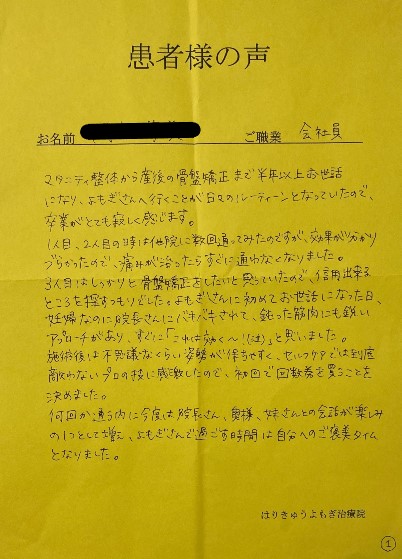 患者様の声
お名前 ご職業 会社員
マタニティ整体から産後の骨盤矯正まで半年以上お世話
になり、よもぎさんへ行くことが日々のルーティーンとなっていたので、
卒業がとても寂しく感じます。
1人目、2人目の時は他院に数回通ってみたのですが、効果が分かり
づらかったので、痛みが治ったらすぐに通わなくなりました。
3人目はしっかりと骨盤矯正をしたいと思っていたので、信用出来る
ところを探すつもりでした。よもぎさんに初めてお世話になった日、
妊婦なのに院長さんにバキバキされて、鈍った筋肉にも鋭い
アプローチがあり、すぐに「これは効く〜!(は)」と思いました。
施術後は不思議なくらい姿勢が保ちやすく、セルフケアでは到底
敵わないプロの技に感激したので、初回で回数券を買うことを
決めました。
何回か通う内に今度は院長さん、奥様、妹さんとの会話が楽しみ
の1つとして増え、よもぎさんで過ごす時間は自分へのご褒美タイム
となりました。
はりきゅうよもぎ治療院
1